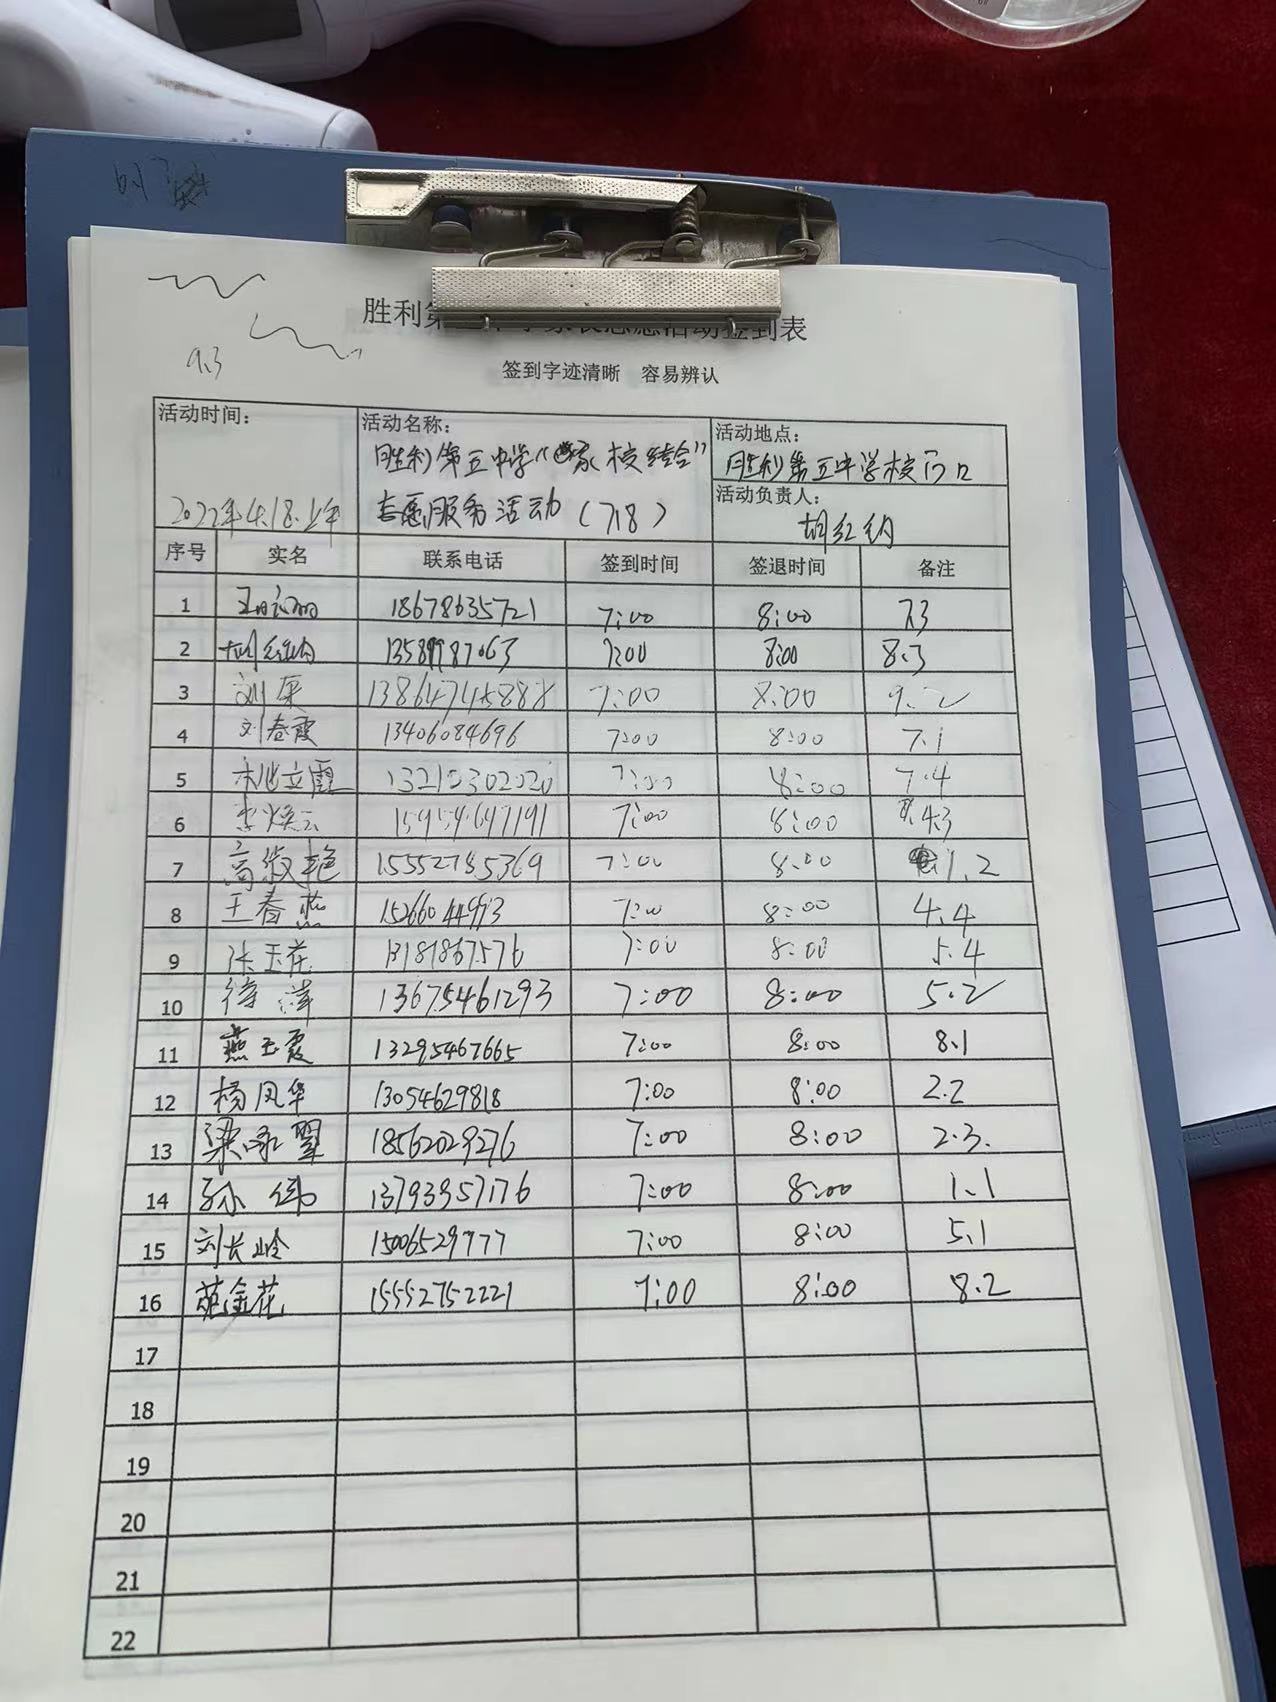 胜利第 活动签到表
9.3
签到字迹清晰 容易辨认
活动时间:
2022年4.18.上午
活动名称:
胜利第五中学“家校结合”
志愿服务活动(7.8)
活动地点:
胜利第五中学校门口
活动负责人:
胡红娟
序号 实名 联系电话 签到时间 签退时间 备注
1 18678635721 7:00 8:00 7.3
2 13589987063 7:00 8:00 8.3
3 刘 13864745888 7:00 8:00 9.2
4 刘春霞 13406084696 7:00 8:00 7.1
5 13210302020 7:00 8:00 7.4
6 李焕云 15954647191 7:00 8:00 4.3
7 高淑艳 15552785369 7:00 8:00 1.2
8 王春燕 15266044993 7:00 8:00 4.4
9 张玉花 13181867576 7:00 8:00 5.4
10 徐萍 13675461293 7:00 8:00 5.2
11 燕玉霞 13295467665 7:00 8:00 8.1
12 杨凤华 13054629818 7:00 8:00 2.2
13 梁咏翠 18562029276 7:00 8:00 2.3.
14 孙伟 13793957176 7:00 8:00 1.1
15 刘长岭 15006529777 7:00 8:00 5.1
16 范金花 15552752221 7:00 8:00 8.2
17
18
19
20
21
22